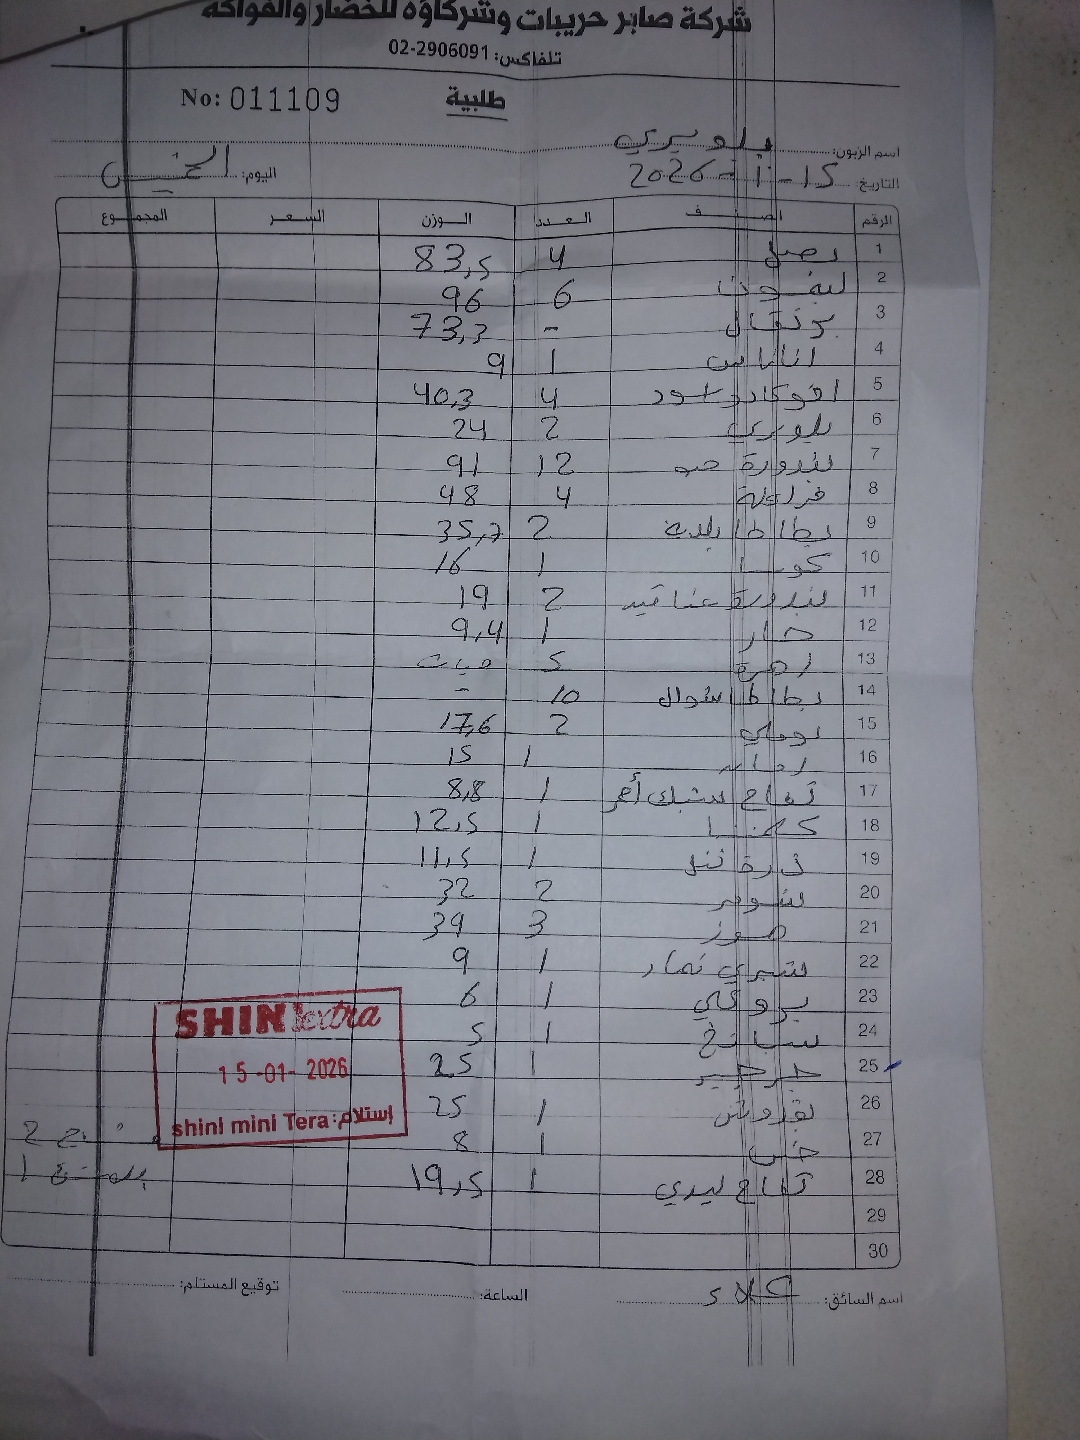 شركة صابر حريبات وشركاؤه للخضار والفواكه
تلفاكس: 02-2906091
No: 011109 طلبية
اسم الزبون: بلوبيري
التاريخ: 15-1-2026 اليوم: الخميس
الرقم الصنف العدد الوزن السعر المجموع
1 بصل 4 83,5
2 ليمون 6 96
3 برتقال - 73,3
4 اناناس 1 9
5 افوكادو اسود 4 40,3
6 بلوبيري 2 24
7 بندورة حبو 12 91
8 فراولة 4 48
9 بطاطا بلدية 2 35,7
10 كوسا 1 16
11 بندورة عناقيد 2 19
12 خيار 1 9,4
13 زهرة 5 حبات
14 بطاطا شوال 10 -
15 بوملي 2 17,6
16 1 15
17 تفاح أحمر 1 8,8
18 كلمنتينا 1 12,5
19 ذرة 1 11,5
20 2 32
21 موز 3 39
22 شيري تمار 1 9
23 بروكلي 1 6
24 سبانخ 1 5
25 جرجير 1 25
26 بقدونس 1 25
27 خس 1 8
28 تفاح ليدي 1 19,5
29
30
SHINI extra
15-01-2026
shini mini Tera إستلام:
2
1
اسم السائق: علاء الساعة: توقيع المستلم: